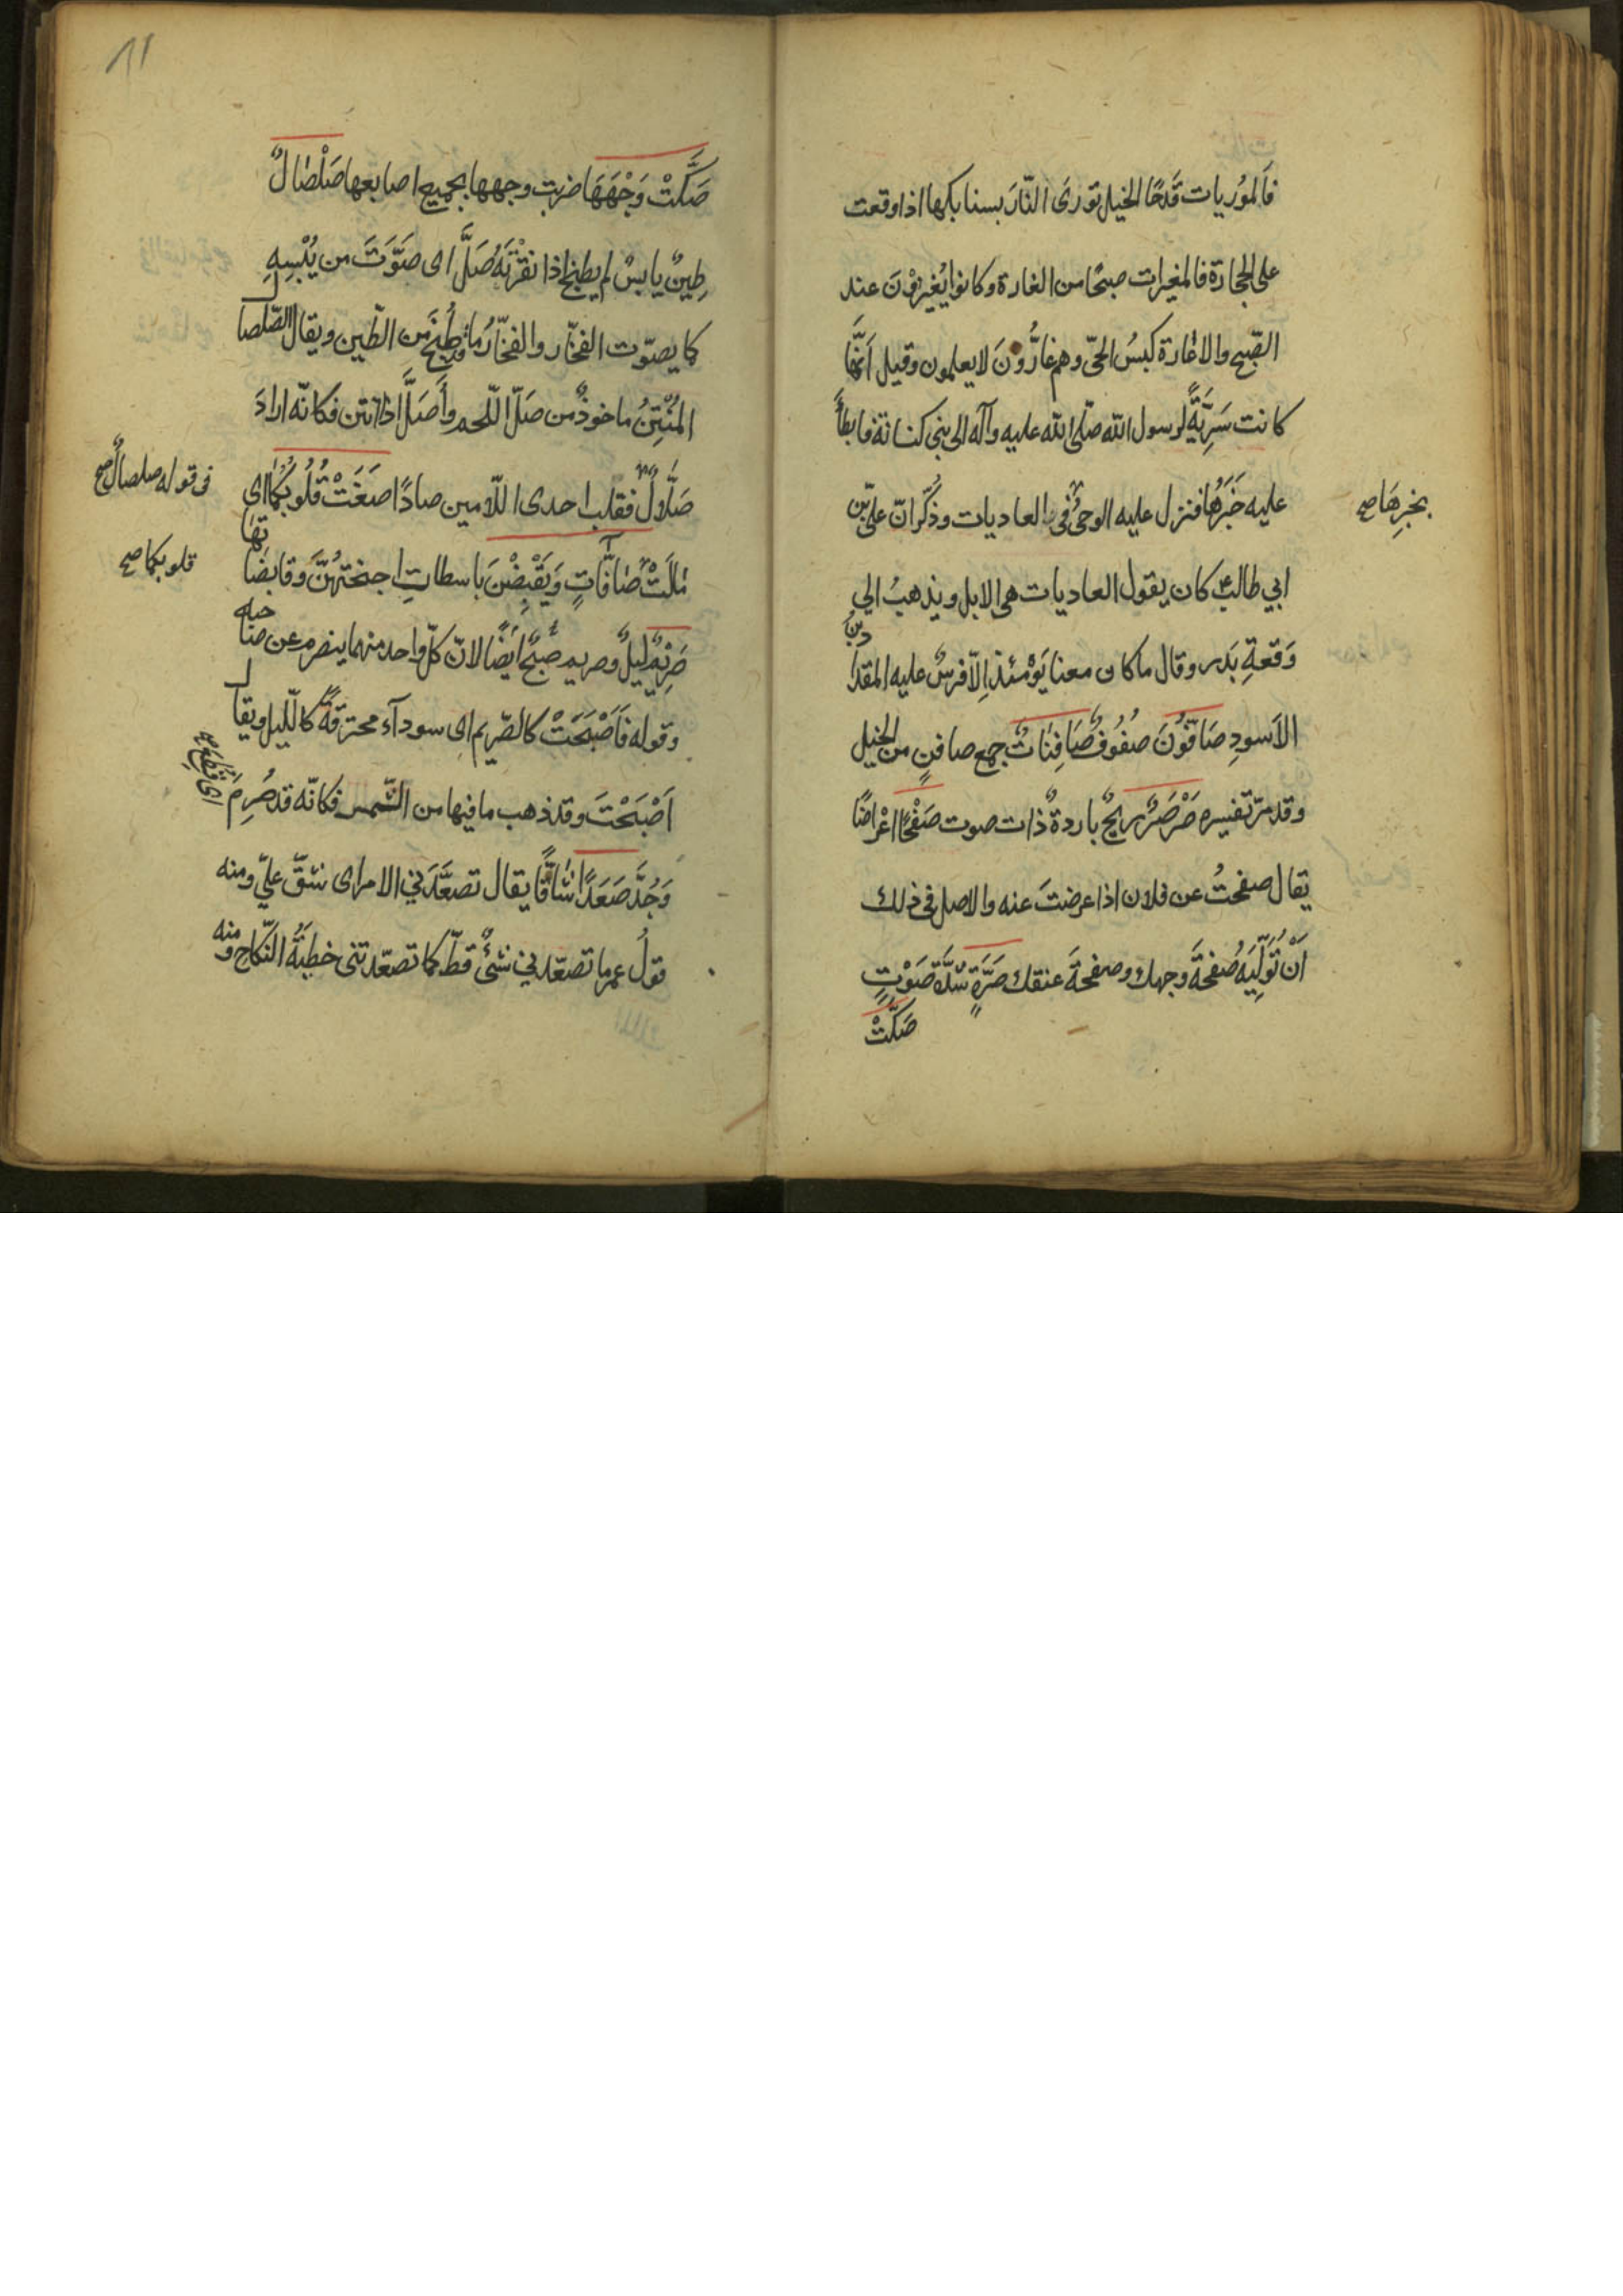 فَالمُورِيات قَدحًا الخيل تورى النّارَ بسنابكها اذا وقعت
على الحجارة فالمغيرات صبحًا من الغارة وكانوا يُغيرُونَ عند
الصّبح والاغارة كبسُ الحىّ وهم غارُّونَ لا يعلمون وقيل اَنَّها
كانت سَرِيَّةً لرسول الله صلّى الله عليه وآله الى بنى كنانة فابطأَ
عليه خَبَرُها فنزل عليه الوحىُ فى العاديات وذُكّر انّ علىّ بن
بخبرِها صح
ابي طالب كان يقول العاديات هى الابل ويذهبُ الي
وَقعةِ بَدر وقال ما كان معنا يَوْمئذٍ اِلّا فرسٌ عليه المقداد بنُ
الاَسودِ صَافُّونَ صُفُوفٌ صَافِنَاتٌ جمع صافنٍ من الخيل
وقد مرّ تفسيره صَرْصَرٌ ريحٌ باردةٌ ذات صوت صَفْحًا اعْراضًا
يقال صفحتُ عن فلان اذا عرضتَ عنه والاصل فى ذلك
اَنْ تُوَلِّيَهُ صُفحةَ وجهك وصفحةَ عنقك صَرَّةٍ شدَّة صَوْتٍ
صَكَّتْ
١١
صَكَّتْ وَجْهَهَا ضربت وجهها بجميع اصابعها صَلْصَالٌ
طِينٌ يابسٌ لم يطبخ اذا نقرْتَهُ صَلَّ اى صَوَّتَ من يُبْسِهِ
كما يصوّت الفخّار والفخّارُ ما طُبخَ من الطّين ويقال الصّلصال
المُنْتِنُ ماخوذٌ من صَلّ اللّحم وأَصَلَّ اذا انتن فكانّه ارادَ
صَلَّالٌ فقلب احدى اللّامين صادًا صَغَتْ قُلُوبُكُمَا اى
فى قوله صلصالٌ صح
مَالَتْ صَافَّاتٍ وَيَقْبِضْنَ باسطاتِ اجنحتهُنَّ وقابضاتها
قلوبكما صح
صَرِيْمٌ ليلٌ وصريم صُبحٌ اَيضًا لانّ كلّ واحد منهما ينصرم عن صاحبه
وقوله فَاَصْبَحَتْ كالصّريم اى سودآء محترقةً كالّليل ويقال
اَصْبَحْتَ وقد ذهب ما فيها من الشّمس فكانّه قد صُرِمَ
اى قُطِعَ
وَجُدَّ صَعَدًا شاقًّا يقال تصعَّدَنى الامر اى شقّ علىّ ومنه
قولُ عمر ما تصعّدنى شئٌ قطّ كما تصعّدتنى خطبَةُ النّكاح ومنه